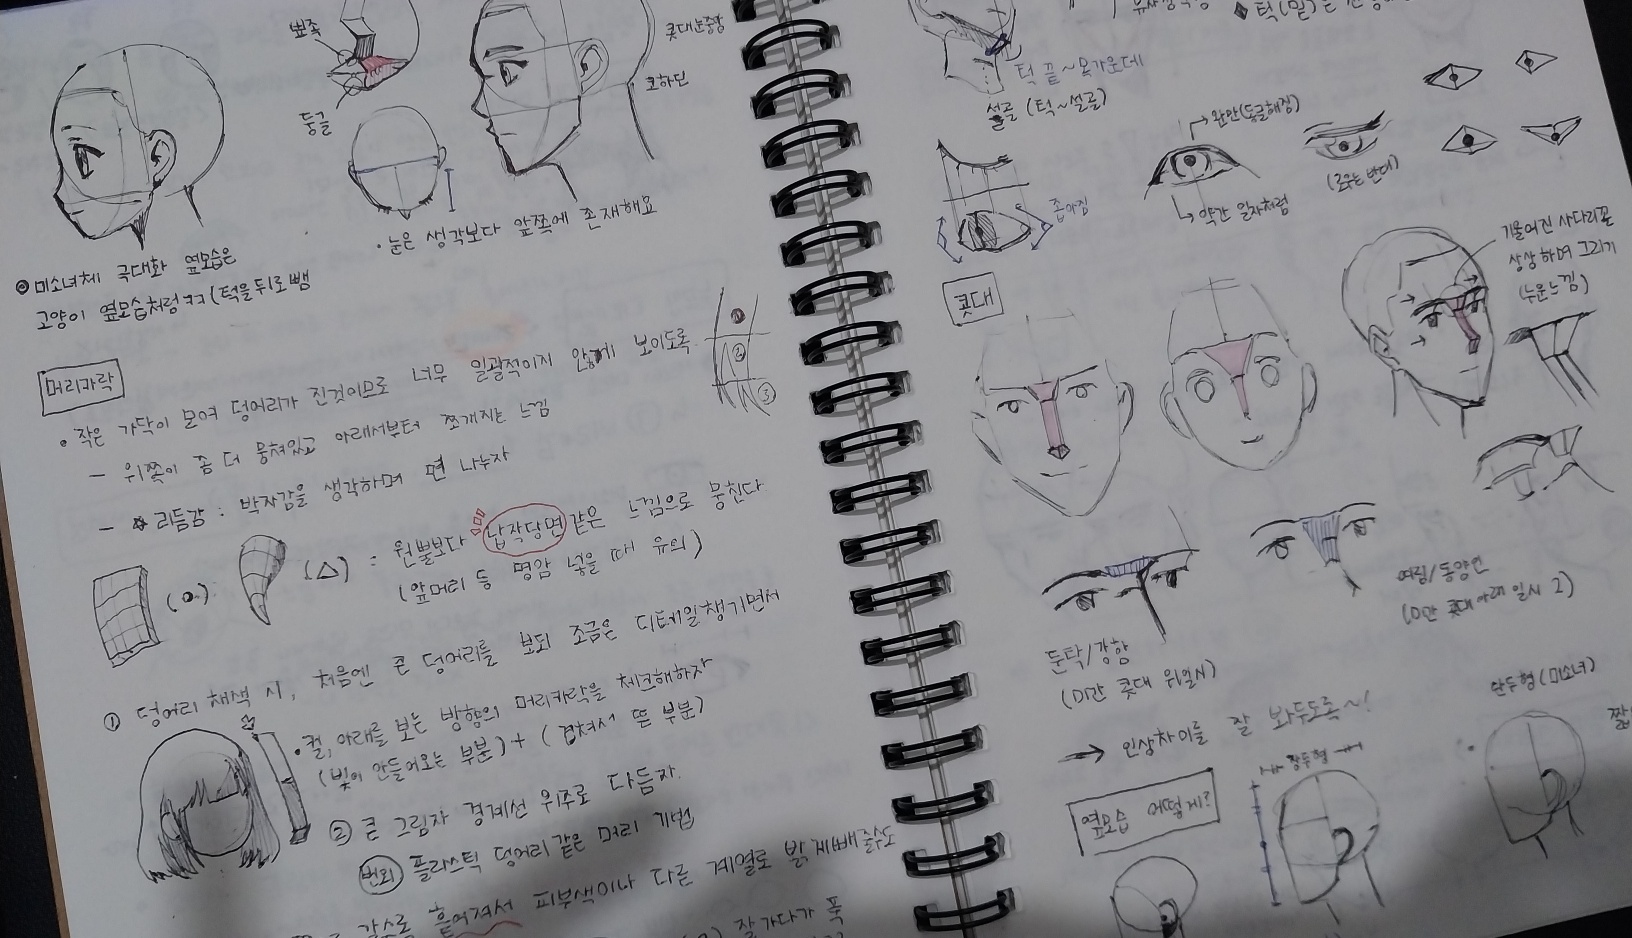 뾰족
둥글
콧대눈중앙
코하단
· 눈은 생각보다 앞쪽에 존재해요
◎ 미소녀체 극대화 옆모습은
고양이 옆모습처럼 ㅋㅋ (턱을 뒤로 뺌
머리카락
· 작은 가닥이 모여 덩어리가 진것이므로 너무 일괄적이지 않게 보이도록
① ② ③
- 위쪽이 좀 더 뭉쳐있고 아래서부터 쪼개지는 느낌
- 리듬감 : 박자감을 생각하며 면 나누자
(o) (△) : 원뿔보다 납작당면 같은 느낌으로 뭉친다
(앞머리 등 명암 넣을 때 유의)
① 덩어리 채색 시, 처음엔 큰 덩어리를 보되 조금은 디테일 챙기면서
· 컬, 아래를 보는 방향의 머리카락을 체크해하자
(빛이 안들어오는 부분) + (겹쳐서 뜬 부분)
② 큰 그림자 경계선 위주로 다듬자.
번외 플라스틱 덩어리 같은 머리 기법
흩어져서 피부색이나 다른 계열로 밝게빼줄수도
잘가다가 폭
턱 끝~목가운데
설골 (턱~설골)
완만(둥글해짐)
→ 약간 일자처럼
(로우는 반대)
좁아짐
콧대
기울어진 사다리꼴
상상하며 그리기
(누운느낌)
둔탁/강함
(미간 콧대 위일시)
여림/동양인
(미간 콧대 아래 일시 2)
→ 인상차이를 잘 봐두도록~!
옆모습 어떻게?
장두형
단두형 (미소녀)